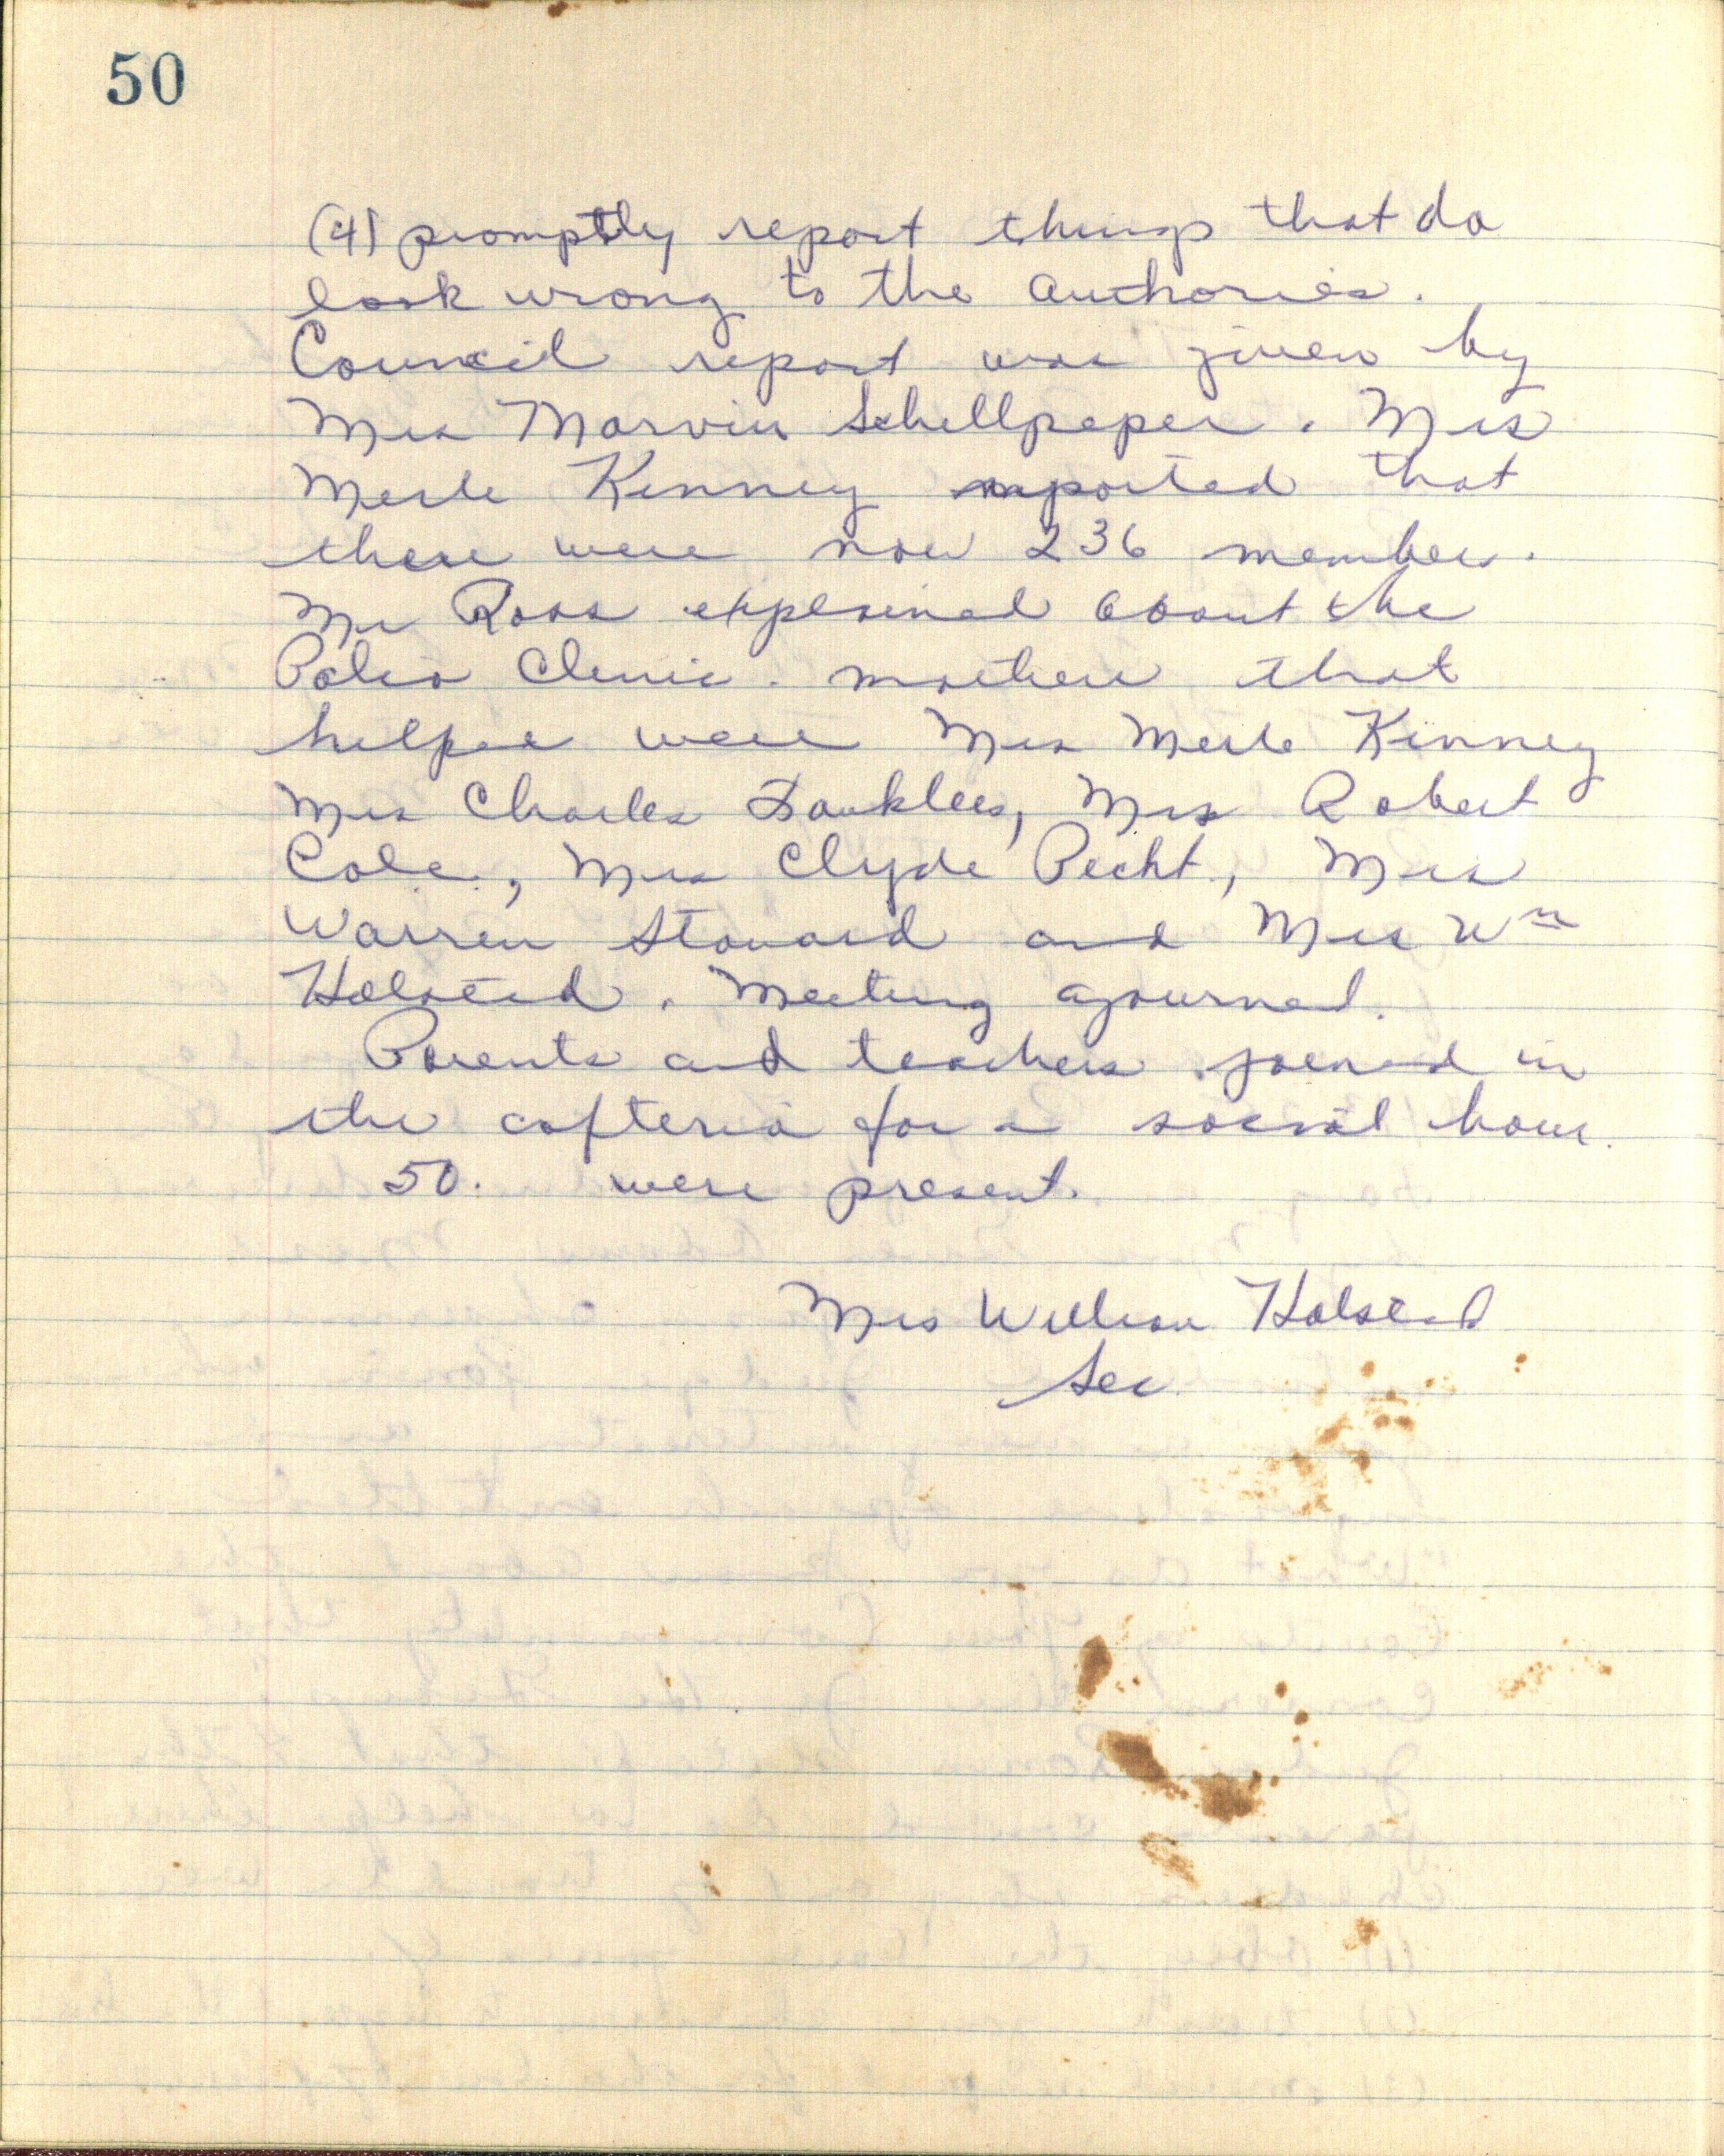 50
(4) promptly report things that do
look wrong to the authories.
Council report was given by
Mrs Marvin Schellpeper. Mrs
Merle Kenney reported that
there were now 236 member.
Mr Ross explained about the
Polio Clinic. mothers that
helped were Mrs Merle Kinney
Mrs Charles Mrs Robert
Cole, Mrs Clyde Pecht, Mrs
Warren Stoward and Mrs Wm
Halsted. Meeting ajourned.
Parents and teachers joened in
the cafteria for a social hour.
50. were present.
Mrs William Halsted
Sec.